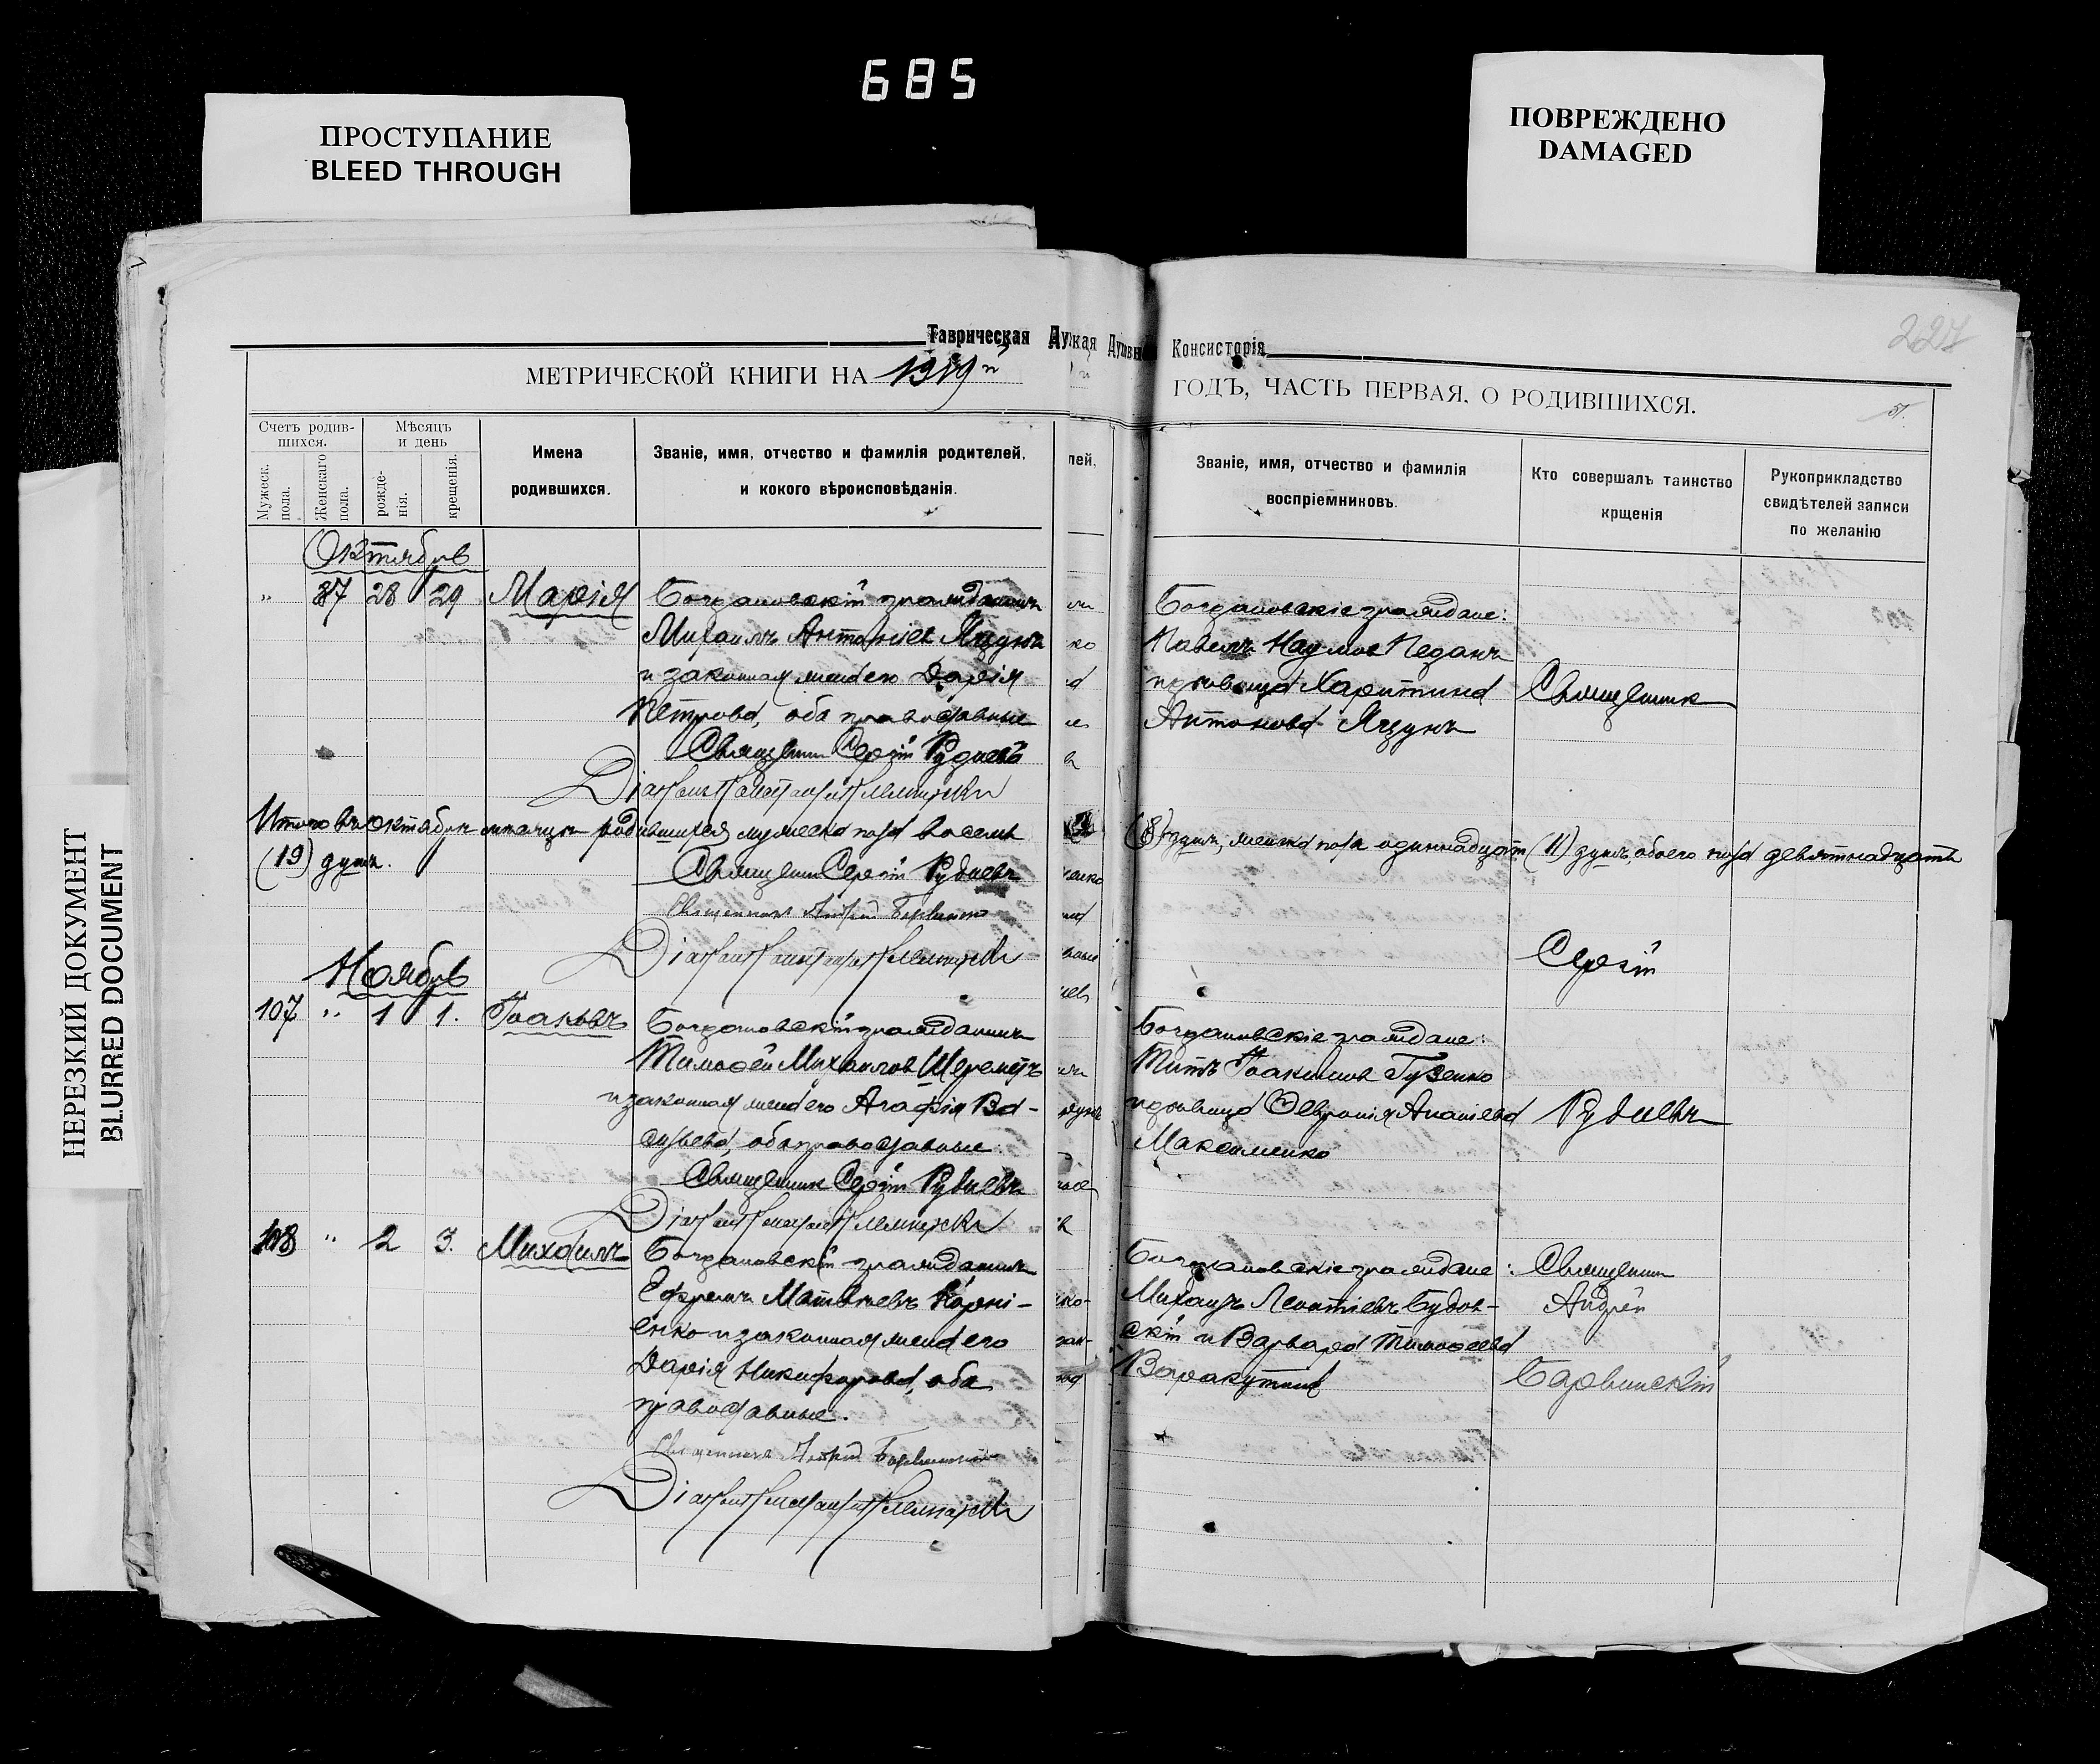 685
ПРОСТУПАНИЕ
BLEED THROUGH
ПОВРЕЖДЕНО
DAMAGED
НЕРЕЗКИЙ ДОКУМЕНТ
BLURRED DOCUMENT
227
Таврическая Духовн Консисторія
МЕТРИЧЕСКОЙ КНИГИ НА 1919й
ГОДЪ, ЧАСТЬ ПЕРВАЯ, О РОДИВШИХСЯ.
51.
Счетъ родив-
шихся.
Мужеск. пола.
Женскаго пола.
Мѣсяцъ
и день
рожде-
нія.
крещенія.
Имена
родившихся.
Званіе, имя, отчество и фамилія родителей,
и кокого вѣроисповѣданія.
Званіе, имя, отчество и фамилія
воспріемниковъ.
Кто совершалъ таинство
крщенія
Рукоприкладство
свидѣтелей записи
по желанію
Октябрь
" 87 28 29 Марія
Богдановскій гражданинъ
Михаилъ Антоніев Яцунъ
и законная жена его Дарія
Петрова, оба православные
Священник Сергій Рудневъ
Богдановскіе граждане:
Павелъ Наумов Педанъ
и девица Харитина
Антонова Яцунъ
Священник
Итого въ октябрѣ мѣсяцѣ родившихся мужеска пола восемь
(8) душъ, женска пола одиннадцать (11) душъ, обоего пола девятнадцать
(19) душъ.
Священник Сергій Рудневъ
Священникъ Андрей
Сергій
Ноябрь
107 " 1 1. Іаковъ
Богдановскій гражданинъ
Тимофей Михаилов Шереметъ
и законная жена его Агафія Ва-
сильева, оба православные
Священник Сергій Рудневъ
Богдановскіе граждане:
Титъ Іоакимов Гузенко
и девица Февронія Ананіева
Максименко
Рудневъ
108 " 2 3. Михаилъ
Богдановскій гражданинъ
Ефремъ Матвѣевъ Корні-
енко и законная жена его
Дарія Никифорова, оба
православные.
Священникъ Андрей Барвинскій
Богдановскіе граждане:
Михаилъ Леонтіевъ Будов-
скій и Варвара Тимофеева
Варакутина
Священник
Андрей
Барвинскій